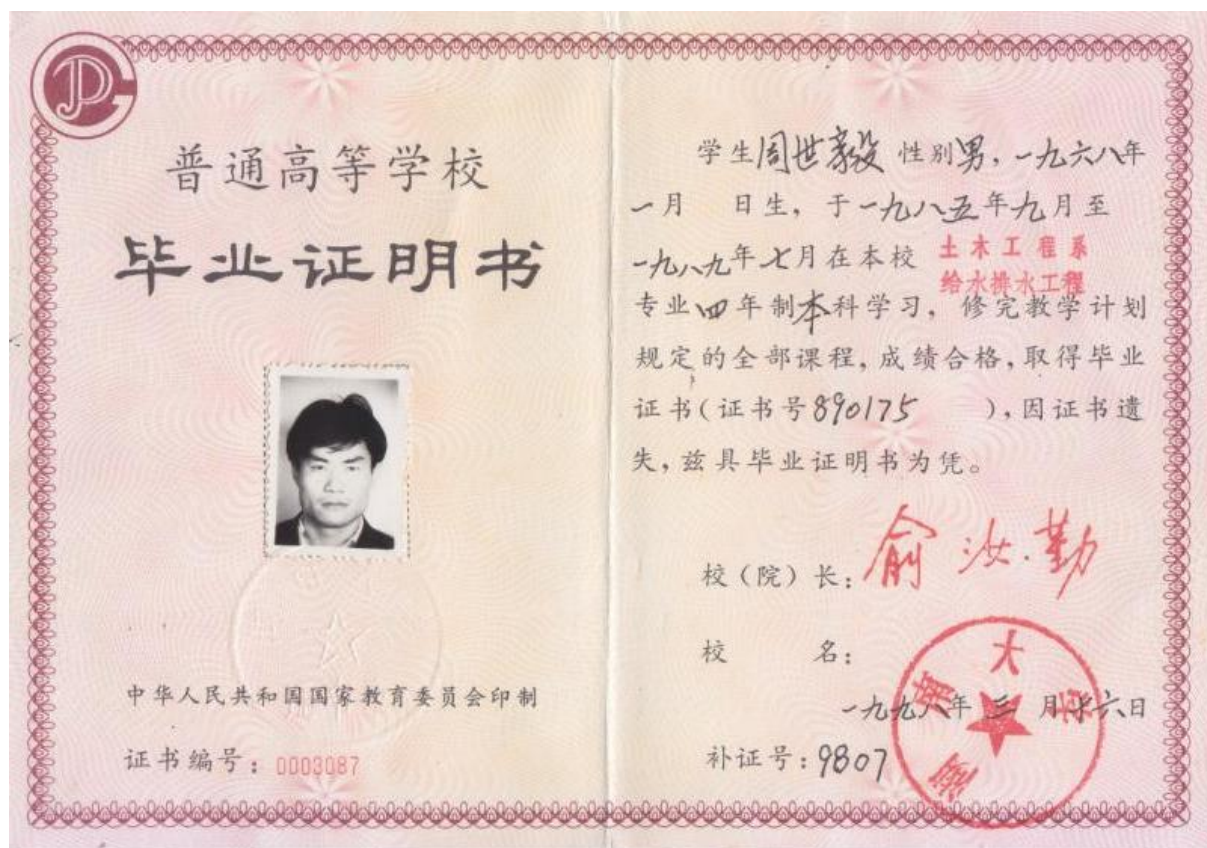 普通高等学校
毕业证明书
中华人民共和国国家教育委员会印制
证书编号：0003087
学生周世毅 性别男，一九六八年
一月 日生，于一九八五年九月至
一九八九年七月在本校 土木工程系
给水排水工程
专业四年制本科学习，修完教学计划
规定的全部课程，成绩合格，取得毕业
证书(证书号890175 )，因证书遗
失，兹具毕业证明书为凭。
校（院）长：俞汝勤
校 名：
湖南大学
一九九八年三月廿六日
补证号：9807